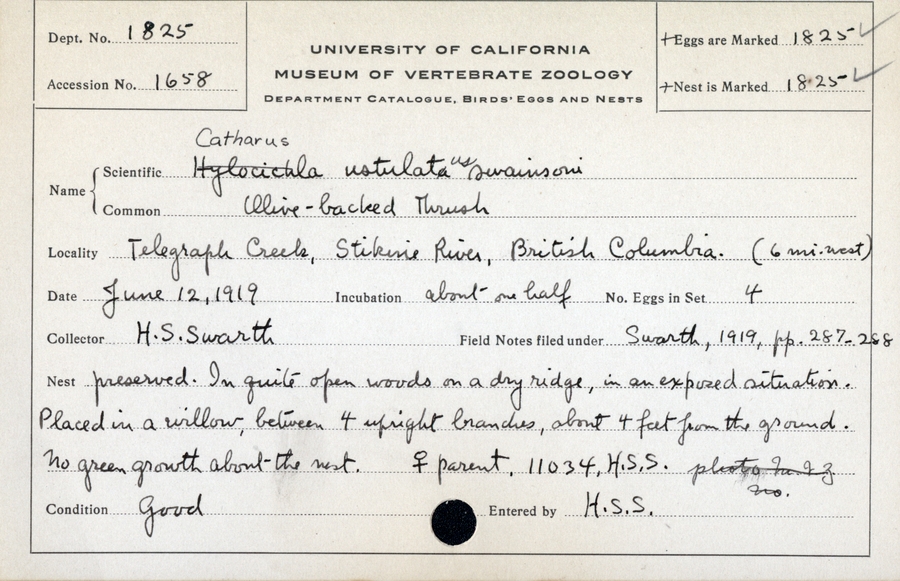 Dept. No. 1825
Accession No. 1658
UNIVERSITY OF CALIFORNIA
MUSEUM OF VERTEBRATE ZOOLOGY
DEPARTMENT CATALOGUE, BIRDS' EGGS AND NESTS
+Eggs are Marked 1825
+Nest is Marked 1825
Catharus
Name
Scientific Hylocichla ustulata us swainsoni
Common Olive-backed Thrush
Locality Telegraph Creek, Stikine River, British Columbia. (6 mi. west)
Date June 12, 1919 Incubation about one half No. Eggs in Set 4
Collector H.S. Swarth Field Notes filed under Swarth, 1919, pp. 287-288
Nest preserved. In quite open woods on a dry ridge, in an exposed situation.
Placed in a willow, between 4 upright branches, about 4 feet from the ground.
No green growth about the nest. ♀ parent, 11034, H.S.S. photo M.V.Z
no.
Condition Good Entered by H.S.S.